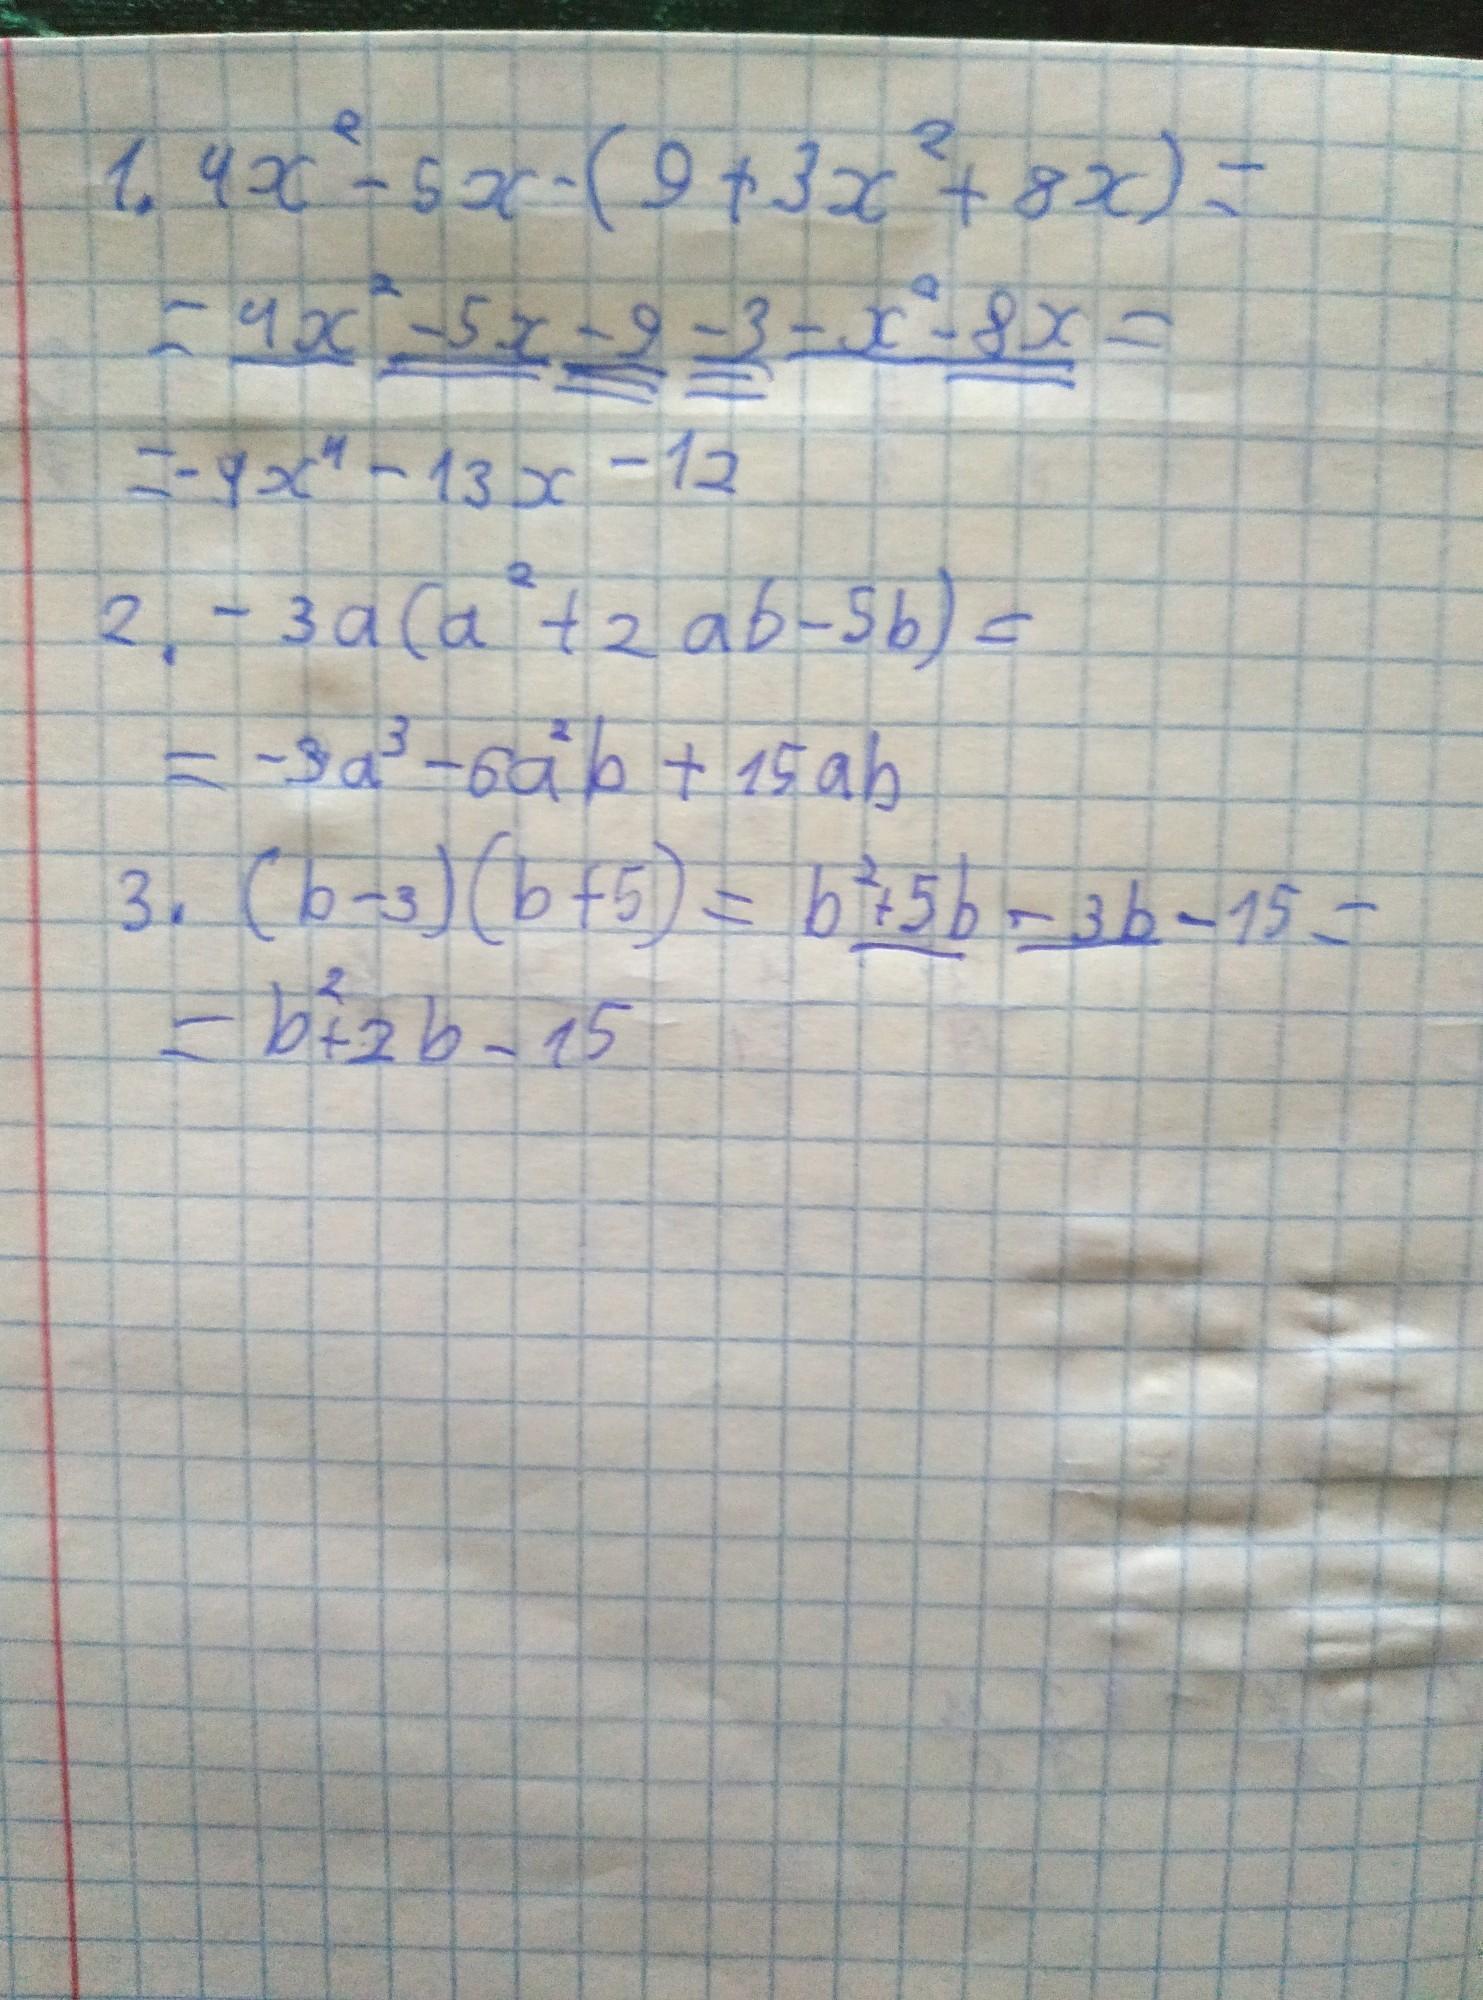 1. 4x² - 5x - (9 + 3x² + 8x) =
= 4x² - 5x - 9 - 3 - x² - 8x =
= -4x⁴ - 13x - 12
2. - 3a(a² + 2ab - 5b) =
= -3a³ - 6a²b + 15ab
3. (b - 3)(b + 5) = b² + 5b - 3b - 15 =
= b² + 2b - 15